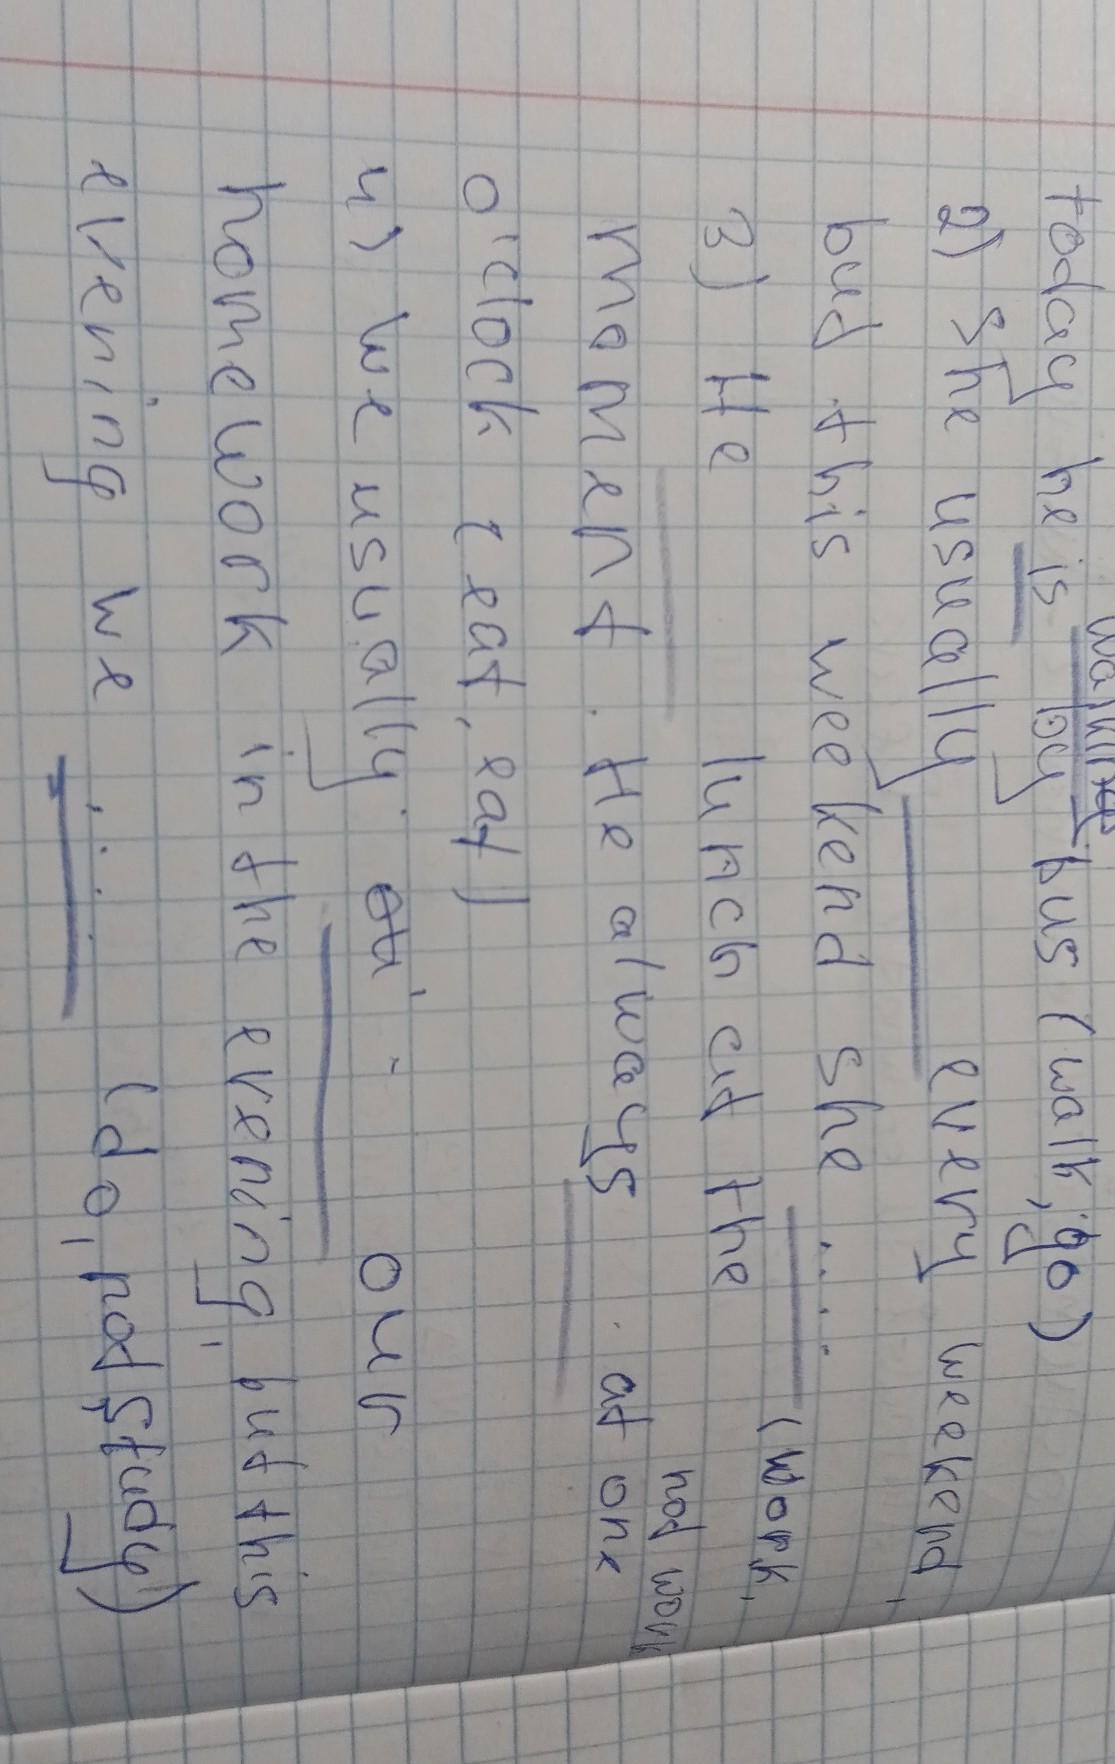 walking
today he is by bus (walk, go)
2) She usually every weekend,
bud this weekend she .... (work,
not work
3) He lunch at the
moment. He always . at one
o'clock (eat, eat)
4) we usually. our
homework in the evening, but this
evening we .... (do, not study)